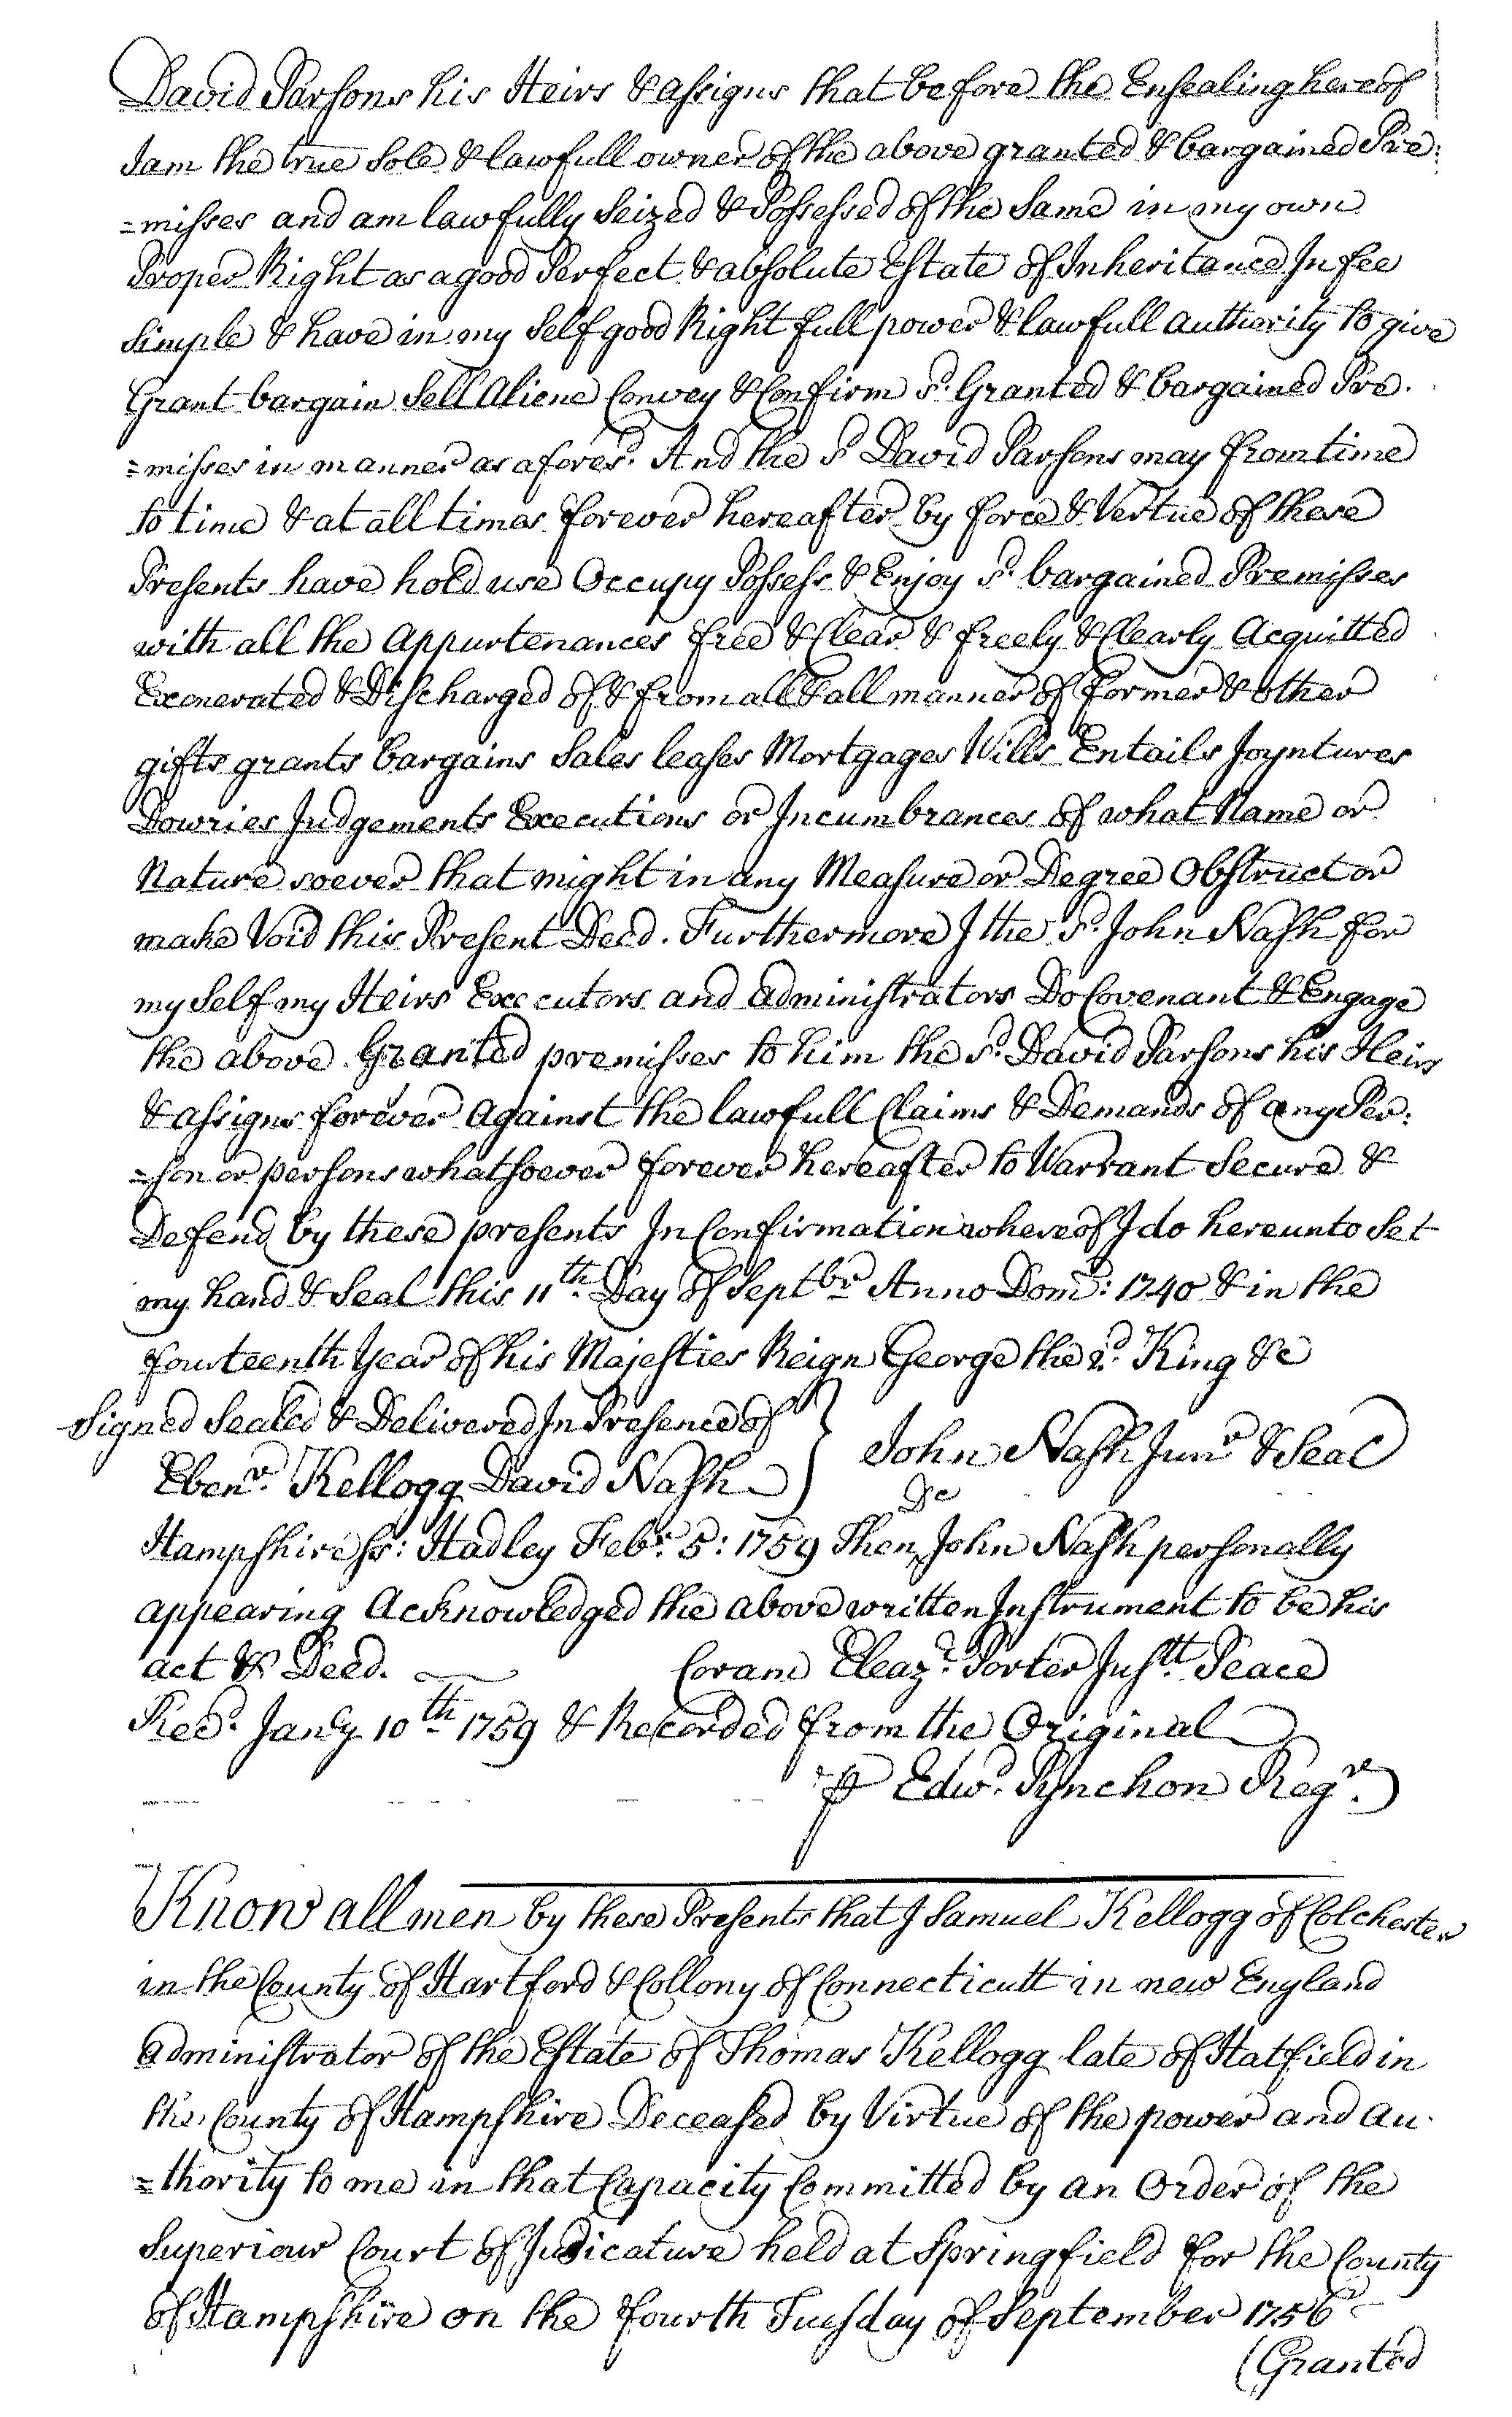 David Parsons his Heirs & assigns that before the Ensealing hereof
I am the true sole & lawfull owner of the above granted & bargained Pre:
=misses and am lawfully Seized & Possessed of the Same in my own
Proper Right as a good Perfect & absolute Estate of Inheritance In fee
simple & have in my Self good Right full power & lawfull authority to give
Grant bargain Sell Aliene Convey & Confirm sd. Granted & bargained Pre.
=misses in manner as aforesd. And the sd David Parsons may from time
to time & at all times forever hereafter by force & Vertue of these
Presents have hold use Occupy Possess & Enjoy sd. bargained Premisses
with all the Appurtenances free & Clear & freely & Clearly Acquitted
Exonerated & Discharged of & from all & all manner of former & other
gifts grants bargains Sales leases Mortgages Wills Entails Joyntures
Dowries Judgements Executions or Incumbrances of what Name or
Nature soever that might in any Measure or Degree Obstruct or
make Void this Present Deed. Furthermore I the sd. John Nash for
my Self my Heirs Executors and administrators Do Covenant & Engage
the above Granted premisses to him the sd. David Parsons his Heirs
& assigns forever against the lawfull Claims & Demands of any Per:
=son or persons whatsoever forever hereafter to Warrant Secure &
Defend by these presents In Confirmation whereof I do hereunto Set
my hand & Seal this 11th. Day of Septbr Anno Dom: 1740 & in the
fourteenth Year of his Majesties Reign George the 2d. King &c
Signed Sealed & Delivered In Presence of
Ebenr. Kellogg David Nash
John Nash Junr & Seal
&c
Hampshire ss: Hadley Febr. 5: 1759 Then John Nash personally
appearing Acknowledged the above written Instrument to be his
act & Deed. Coram Eleazr. Porter Justt. Peace
Recd. Jany 10th 1759 & Recorded from the Original
p Edwd. Pynchon Regr.
Know all men by these Presents that I Samuel Kellogg of Colchester
in the County of Hartford & Collony of Connecticutt in new England
administrator of the Estate of Thomas Kellogg late of Hatfield in
the County of Hampshire Deceased by Virtue of the power and au.
=thority to me in that Capacity Committed by an Order of the
Superiour Court of Judicature held at Springfield for the County
of Hampshire on the fourth Tuesday of September 1756
(Granted